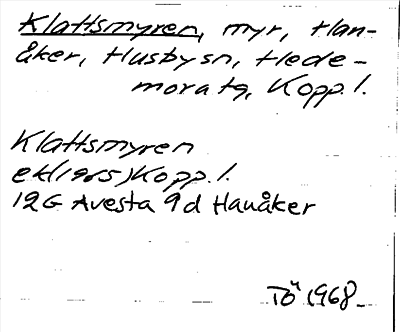 Klattsmyren, myr, Han-
åker, Husby sn, Hede-
mora tg, Kopp. l.
Klattsmyren
ek(1965)Kopp. l.
12G Avesta 9d Hanåker
TÖ 1968